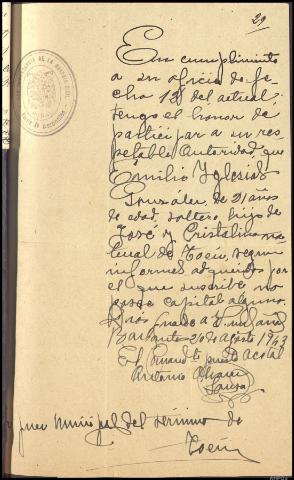 29
En cumplimiento
a su oficio de fe
cha 13 del actual
tengo el honor de
participar a su res
petable Autoridad que
Emilio Yglesias
González, de 21 años
de edad, soltero, hijo de
José y Cristalina na
tural de Toén, segun
informes adquiridos por
el que suscribe no
posee capital alguno.
Dios guarde a V. muchos años
Barbantes 20 de agosto 1943
El Comandte puesto
Antonio Alvarez
juez municipal del término de
Toén